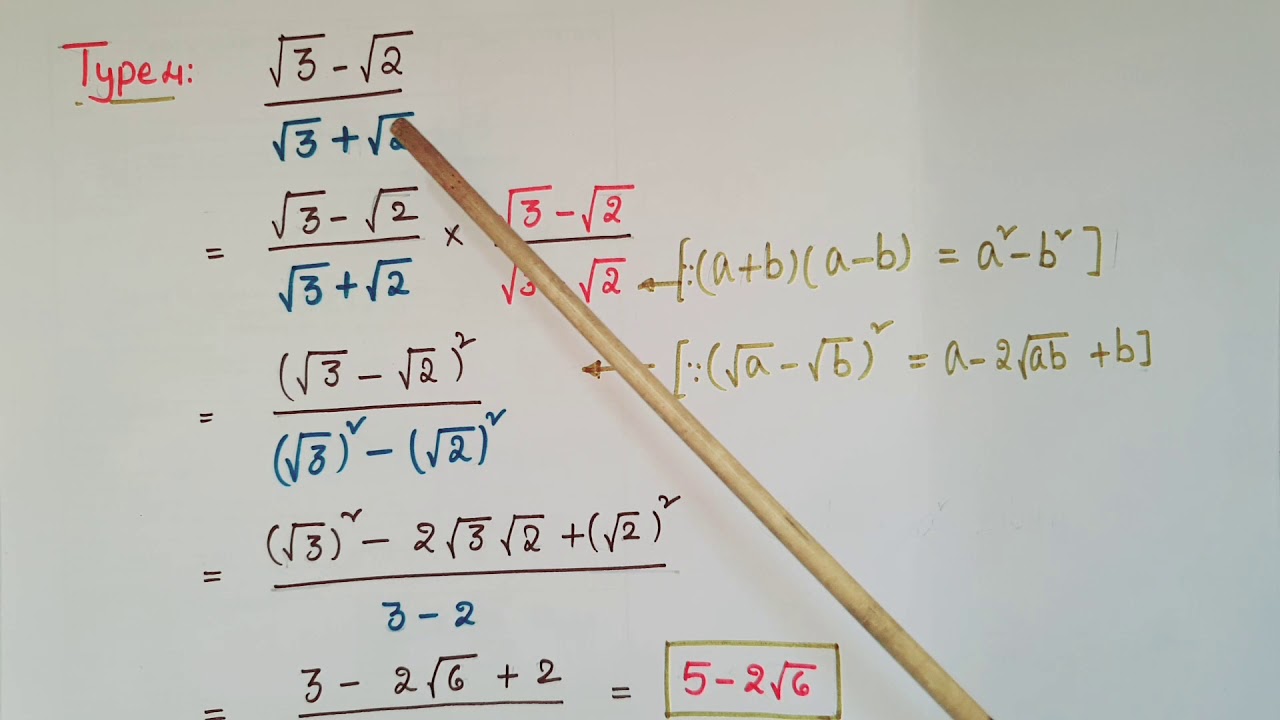 Type4: (√3 - √2)/(√3 + √2)
= (√3 - √2)/(√3 + √2) × (√3 - √2)/(√3 √2) [∵(a+b)(a-b) = a² - b²]
= (√3 - √2)²/((√3)² - (√2)²) [∵(√a - √b)² = a - 2√ab + b]
= ((√3)² - 2√3√2 + (√2)²)/(3 - 2)
= 3 - 2√6 + 2 = 5 - 2√6